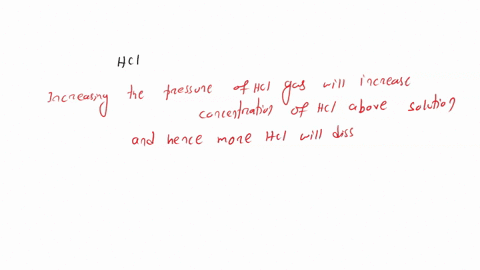 HCl
Increasing the pressure of HCl gas will increase
concentration of HCl above solution
and hence more HCl will diss